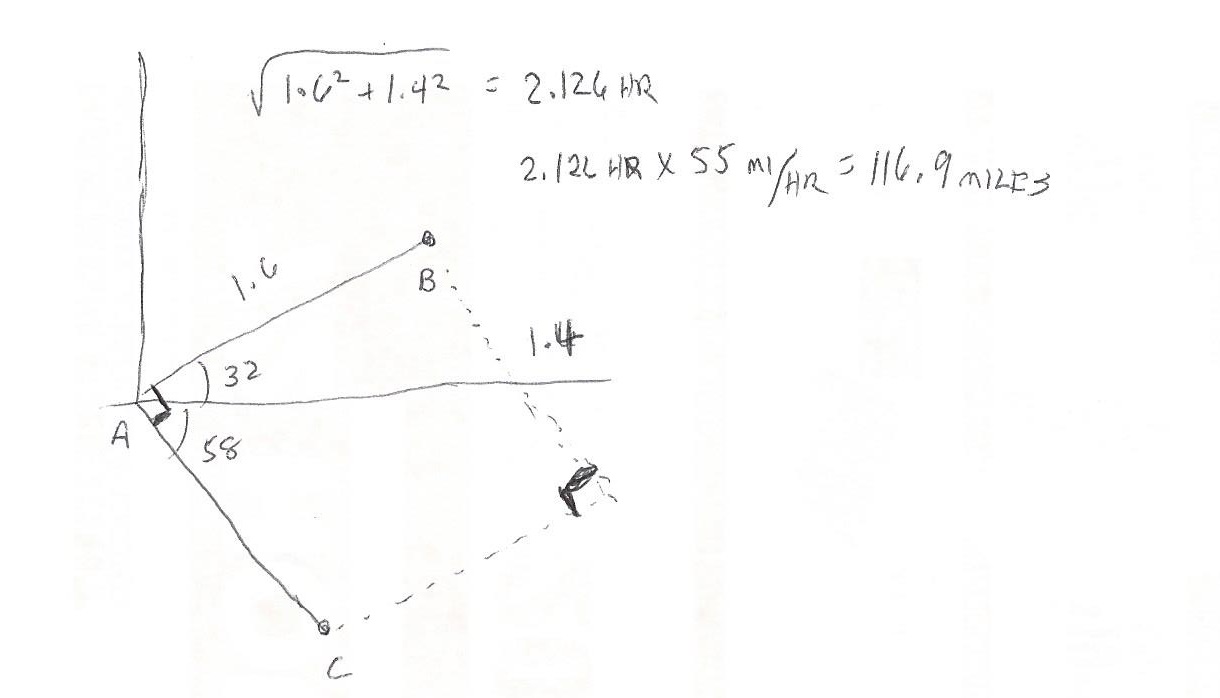 √1.6² + 1.4² = 2.126 HR
2.126 HR X 55 MI/HR = 116.9 MILES
1.6
B
1.4
32
A
58
C